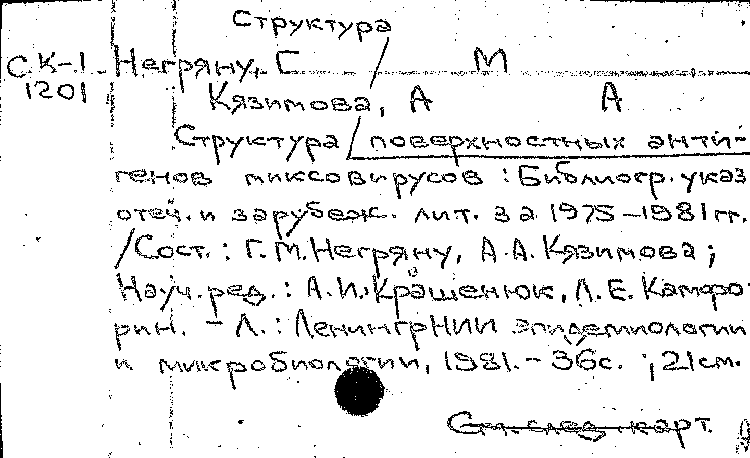 Структура
СК-1 Негряну, Г М
1201 Кязимова, А А
Структура поверхностных анти-
генов миксовирусов : Библиогр. указ
отеч. и зарубеж. лит. за 1975-1981 гг.
/Сост. : Г.М. Негряну, А.А. Кязимова;
Науч. ред. : А.И. Крашенюк, Л.Е. Камфо-
рин. - Л. : ЛенингрНИИ эпидемиологии
и микробиологии, 1981. - 36с. ; 21см.
См. след. карт.